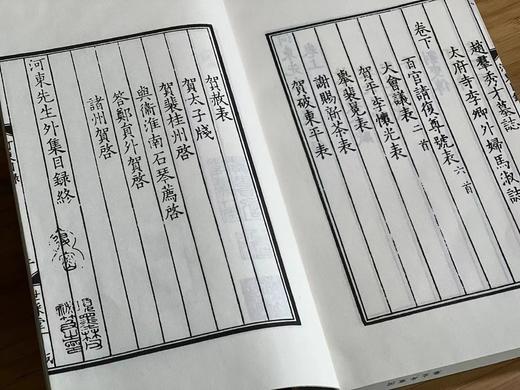 趙羣秀才墓誌
太府寺李卿外婦馬淑誌
卷下
百官請復尊號表六首
大會議表二首
賀平李懷光表
謝賜新茶表
賀破東平表
賀赦表
賀太子牋
賀裴桂州啓
與衛淮南石琴薦啓
答鄭員外賀啓
諸州賀啓
河東先生外集目錄終